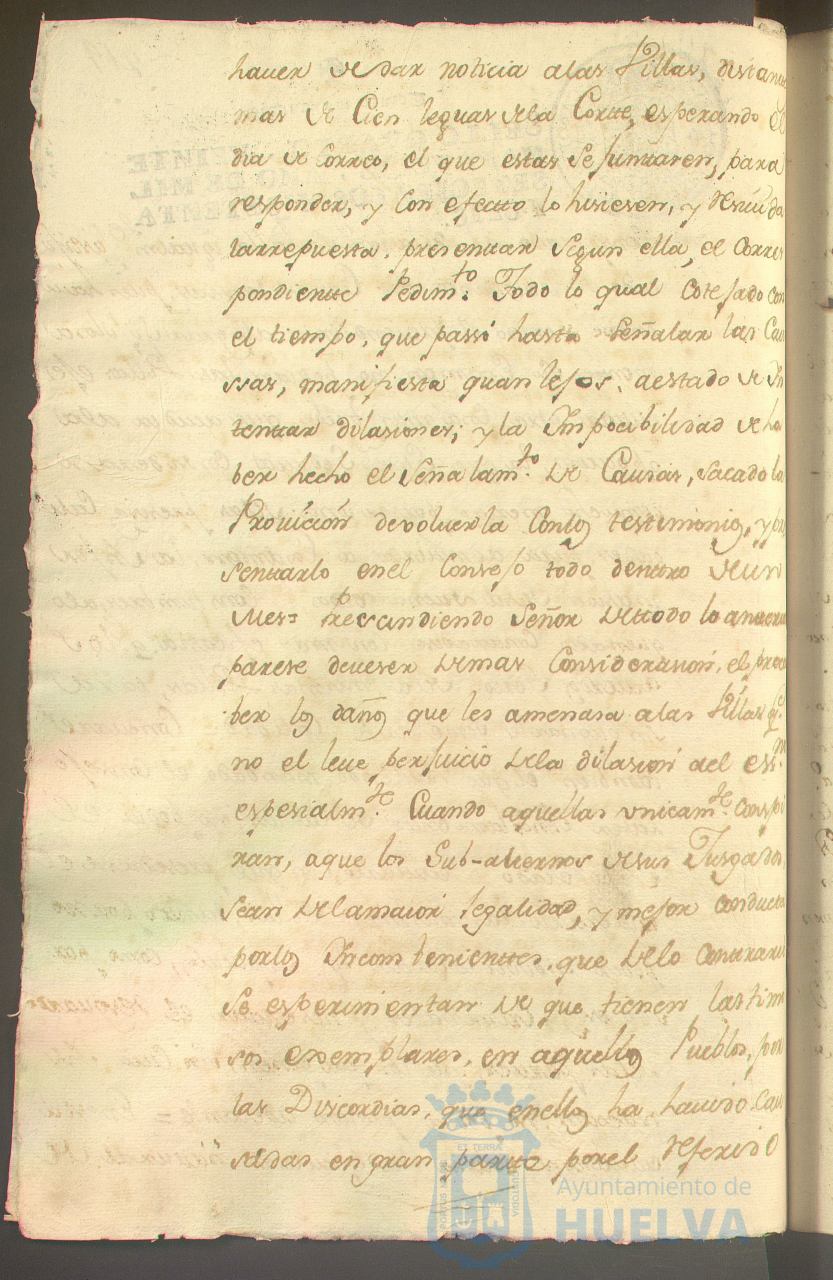 haver de dar noticia alas Villas, distan
mas de Cien leguas dela Corte, esperando el
dia de Correo, el que estas se Juntaren, para
responder, y con efecto lo hisiesen, y venida
larrepuesta, presentar segun ella, el Corres
pondiente Pedim.to Todo lo qual Cotejado con
el tiempo, que passó hasta señalar las Cau
ssas, manifiesta quan lejos, aestado de In
tentar dilasiones; y la Impocibilidad de ha
ber hecho el Señalam.to de Causas, sacado la
Provición devolverla Conlos testimonios, y pre
sentarlo enel Consejo todo dentro deun
Mes= Prescindiendo Señor detodo lo anterior
parese deveser demas Consideracion, el preca
ber los daños que les amenasa alas Villas q.e
no el leve perjuicio dela dilasion del ess.no
espesialm.te Cuando aquellas unicam.te Conspi
ran, aque los Sub-alternos desus Jusgados,
sean delamaior legalidad, y mejor Conducta
porlos Incombenientes, que delo Contrario
se esperimentan de que tienen lastimo
sos exemplares, en aquellos Pueblos, por
las Discordias, que enellos ha havido Cau
sadas en gran parte porel Referido
PORTUS MARIS
ET TERRÆ
CUSTODIA
Ayuntamiento de
HUELVA